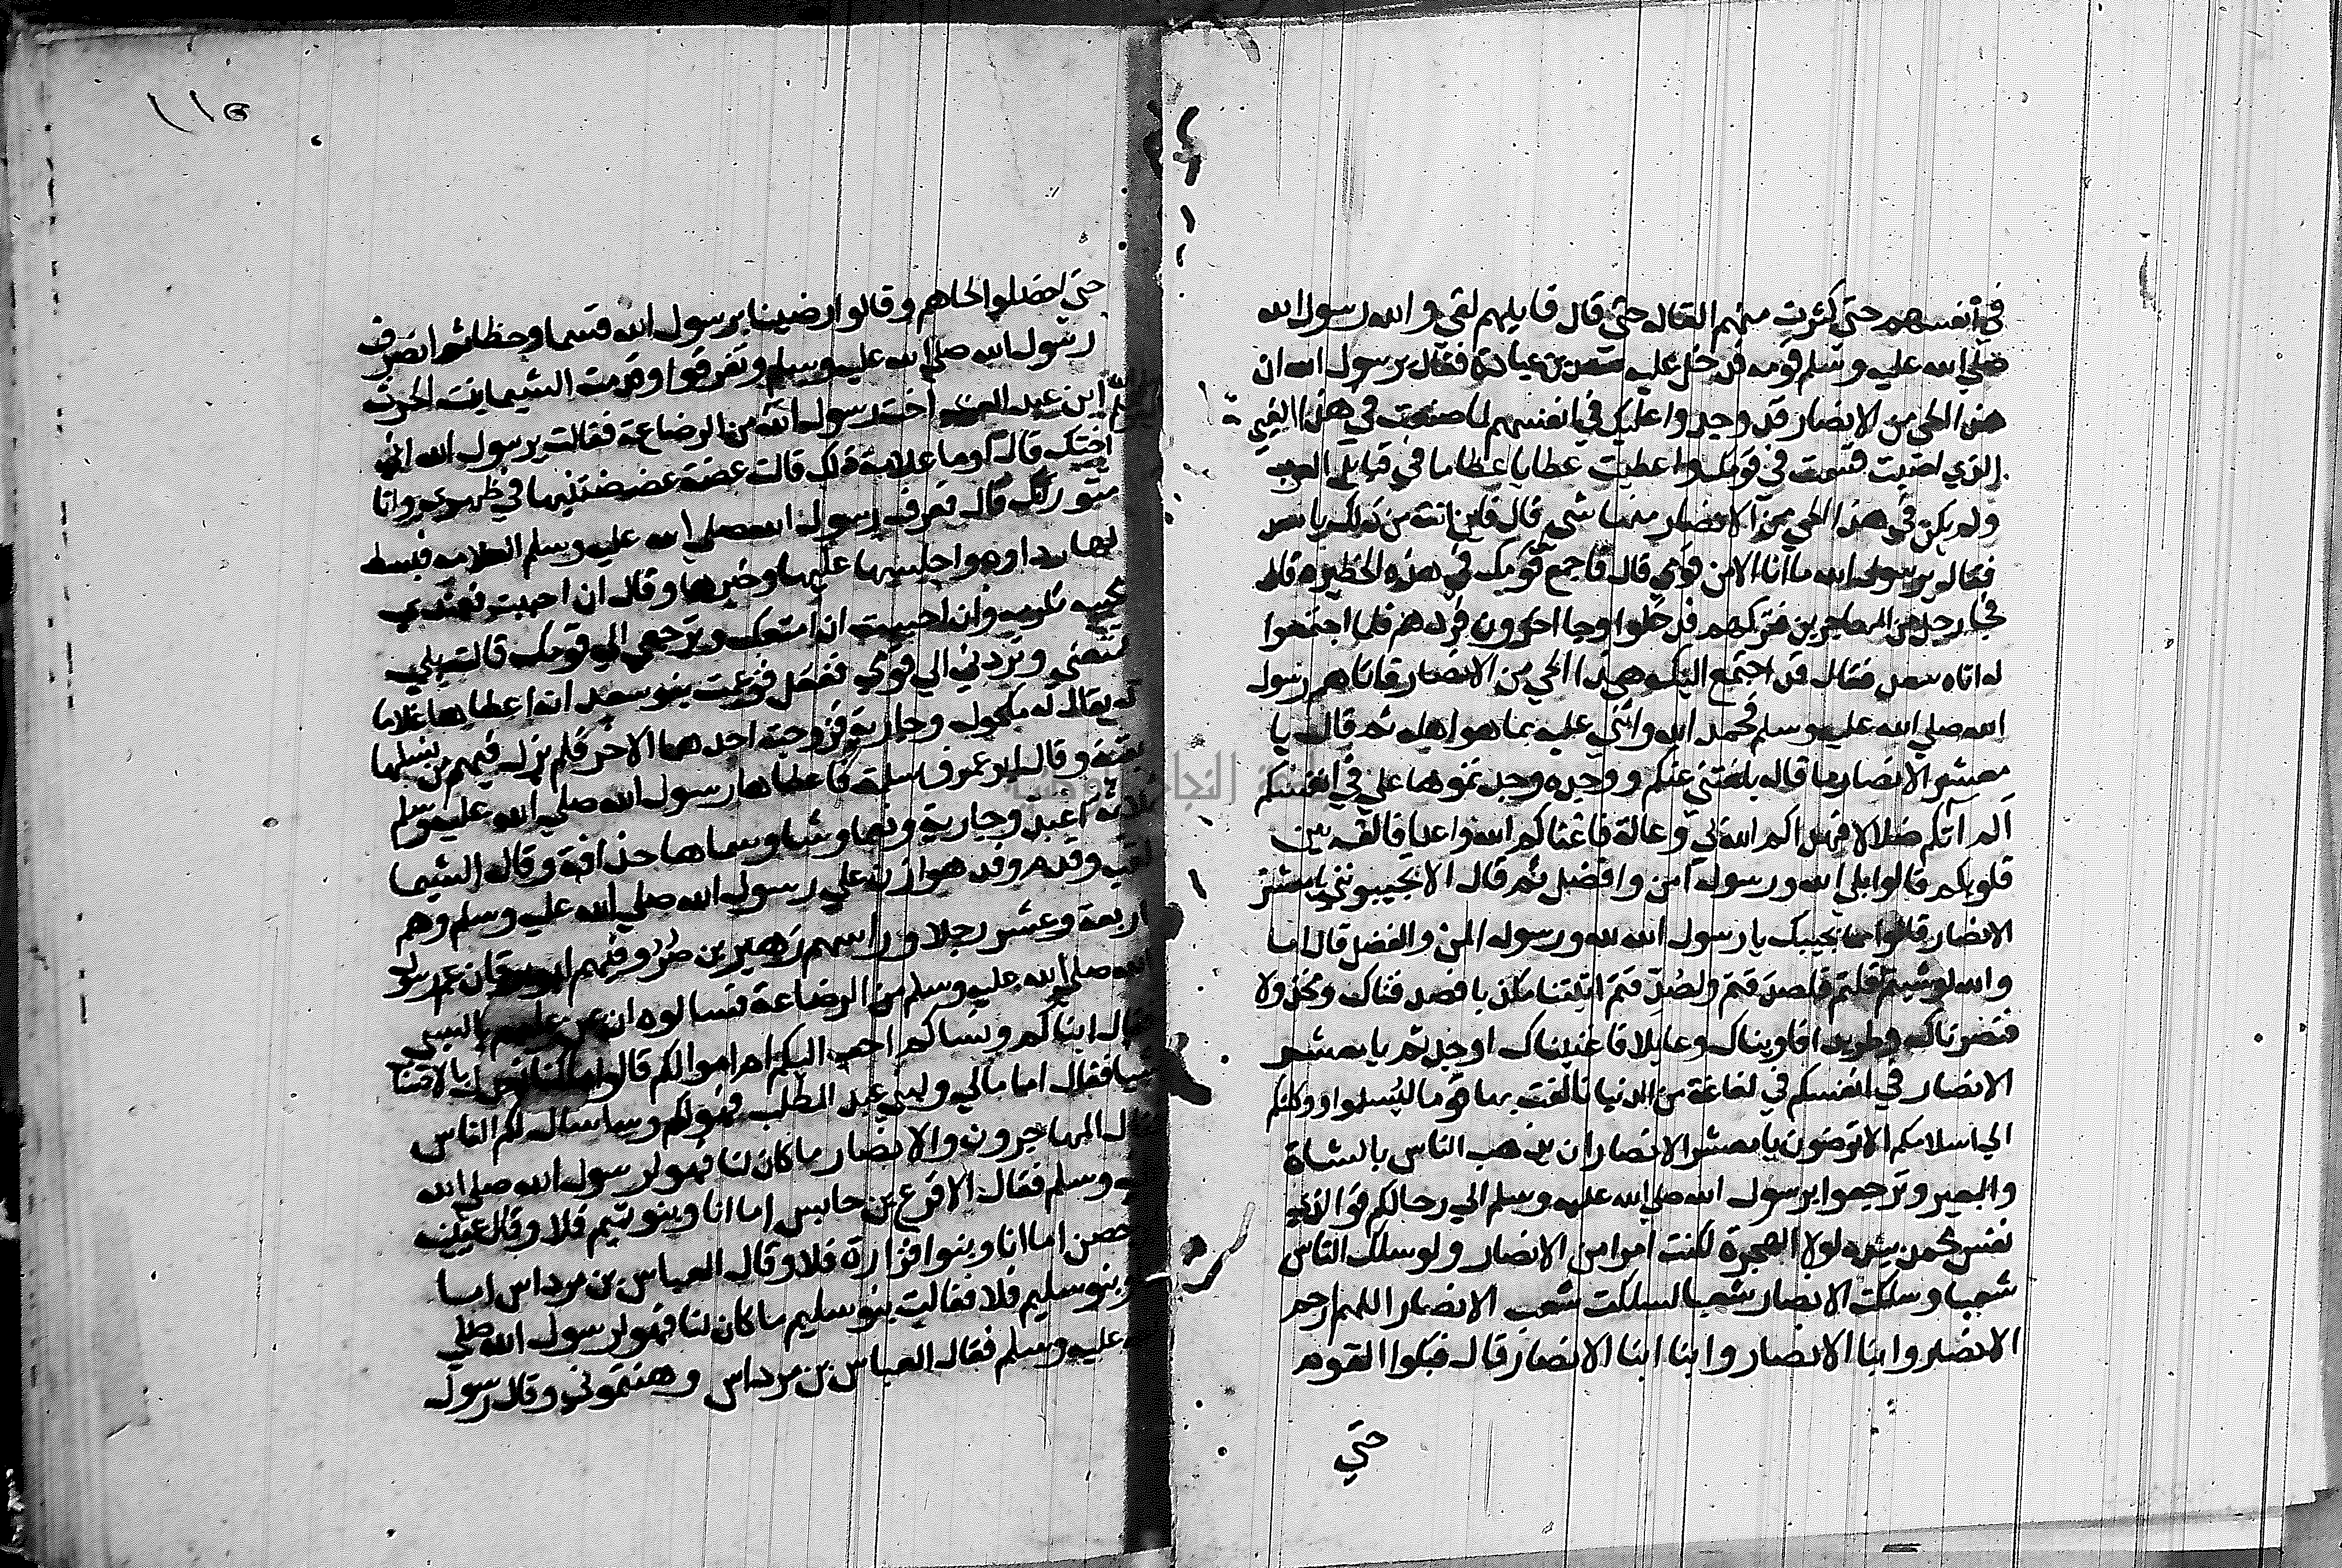 في أنفسهم حتي كثرت منهم القاله حتي قال قايلهم لقي والله رسول الله
صلي الله عليه وسلم قومه فدخل عليه سعد بن عبادة فقال يرسول الله ان
هذا الحي من الانصار قد وجدوا عليك في انفسهم لما صنعت في هذا الفيي
الذي اصبت قسمت في قومك واعطيت عطايا عظاما في قبايل العرب
ولم يكن في هذا الحي من الانصار منها شي قال فاين انت من ذلك يا سعد
فقال يرسول الله ما انا الا من قومي قال فاجمع قومك في هذه الحظيرة قال
فجا رجل من المهاجرين فتركهم فدخلوا وجا اخرون فردهم فلما اجتمعوا
له اتاه سعد فقال قد اجتمع اليك هذا الحي من الانصار فاتاهم رسول
الله صلي الله عليه وسلم فحمد الله واثني عليه بما هو اهله ثم قال يا
معشر الانصار ما قاله بلغتني عنكم ووجده وجدتموها علي في أنفسكم
الم آتكم ضلالا فهداكم الله بي وعالة فاغناكم الله واعدا فالف بين
قلوبكم قالوا بلي الله ورسوله آمن وافضل ثم قال الا تجيبونني يا معشر
الانصار قالوا بما نجيبك يا رسول الله لله ورسوله المن والفضل قال اما
والله لو شيتم قلتم فلصدقتم ولصدقتم اتيتنا مكذبا فصدقناك ومخذولا
فنصرناك وطريدا فاويناك وعايلا فاغنيناك اوجدتم يا معشر
الانصار في انفسكم في لعاعة من الدنيا تالفت بها قوما ليسلموا ووكلتكم
الي اسلامكم الا ترضون يا معشر الانصار ان يذهب الناس بالشاة
والبعير وترجعوا برسول الله صلي الله عليه وسلم الي رحالكم فوالذي
نفس محمد بيده لولا الهجرة لكنت امرا من الانصار ولو سلك الناس
شعبا وسلكت الانصار شعبا لسلكت شعب الانصار اللهم ارحم
الانصار وابنا الانصار وابنا ابنا الانصار قال فبكوا القوم
حتي
١١٥
حتي اخضلوا لحاهم وقالوا رضينا برسول الله قسما وحظا ثم انصرف
رسول الله صلي الله عليه وسلم وتفرقوا وقدمت الشيما بنت الحرث
ابن عبد اخت رسول الله من الرضاعة فقالت يرسول الله اني
اختك قال وما علامة ذلك قالت عضة عضضتنيها في ظهري وانا
متوركتك قال فعرف رسول الله صلي الله عليه وسلم العلامه فبسط
لها رداوه واجلسها عليها وخيرها وقال ان احببت فعندي
محببه مكرمه وان احببت ان امتعك وترجعي الي قومك قالت بلي
تمتعني وتردني الي قومي ففعل فزعمت بنو سعد انه اعطاها غلاما
له يقال له مكحول وجارية فزوجت احدهما الاخر فلم يزل فيهم من نسلها
بقية وقال ابو عمر فاسلمت فاعطاها رسول الله صلي الله عليه وسلم
ثلاثة اعبد وجارية ونعما وشا وسماها حذافة وقال الشيما
لقب وقدم وفد هوازن علي رسول الله صلي الله عليه وسلم وهم
اربعة وعشر رجلا وراسهم زهير بن صرد وفيهم ابو برقان عم رسول
الله صلي الله عليه وسلم من الرضاعة فسالوه ان يمن عليهم بالسبي
فقال ابناكم ونساكم احب اليكم ام اموالكم قالوا ما كنا نعدل بالاحساب
شيا فقال اما ما لي ولبني عبد المطلب فهو لكم وساسال لكم الناس
فقال المهاجرون والانصار ما كان لنا فهو لرسول الله صلي الله
عليه وسلم فقال الاقرع بن حابس اما انا وبنو تميم فلا وقال عيينه
بن حصن اما انا وبنوا فزارة فلا وقال العباس بن مرداس اما
انا وبنو سليم فلا فقالت بنو سليم ما كان لنا فهو لرسول الله صلي
الله عليه وسلم فقال العباس بن مرداس وهنتموني وقال رسول